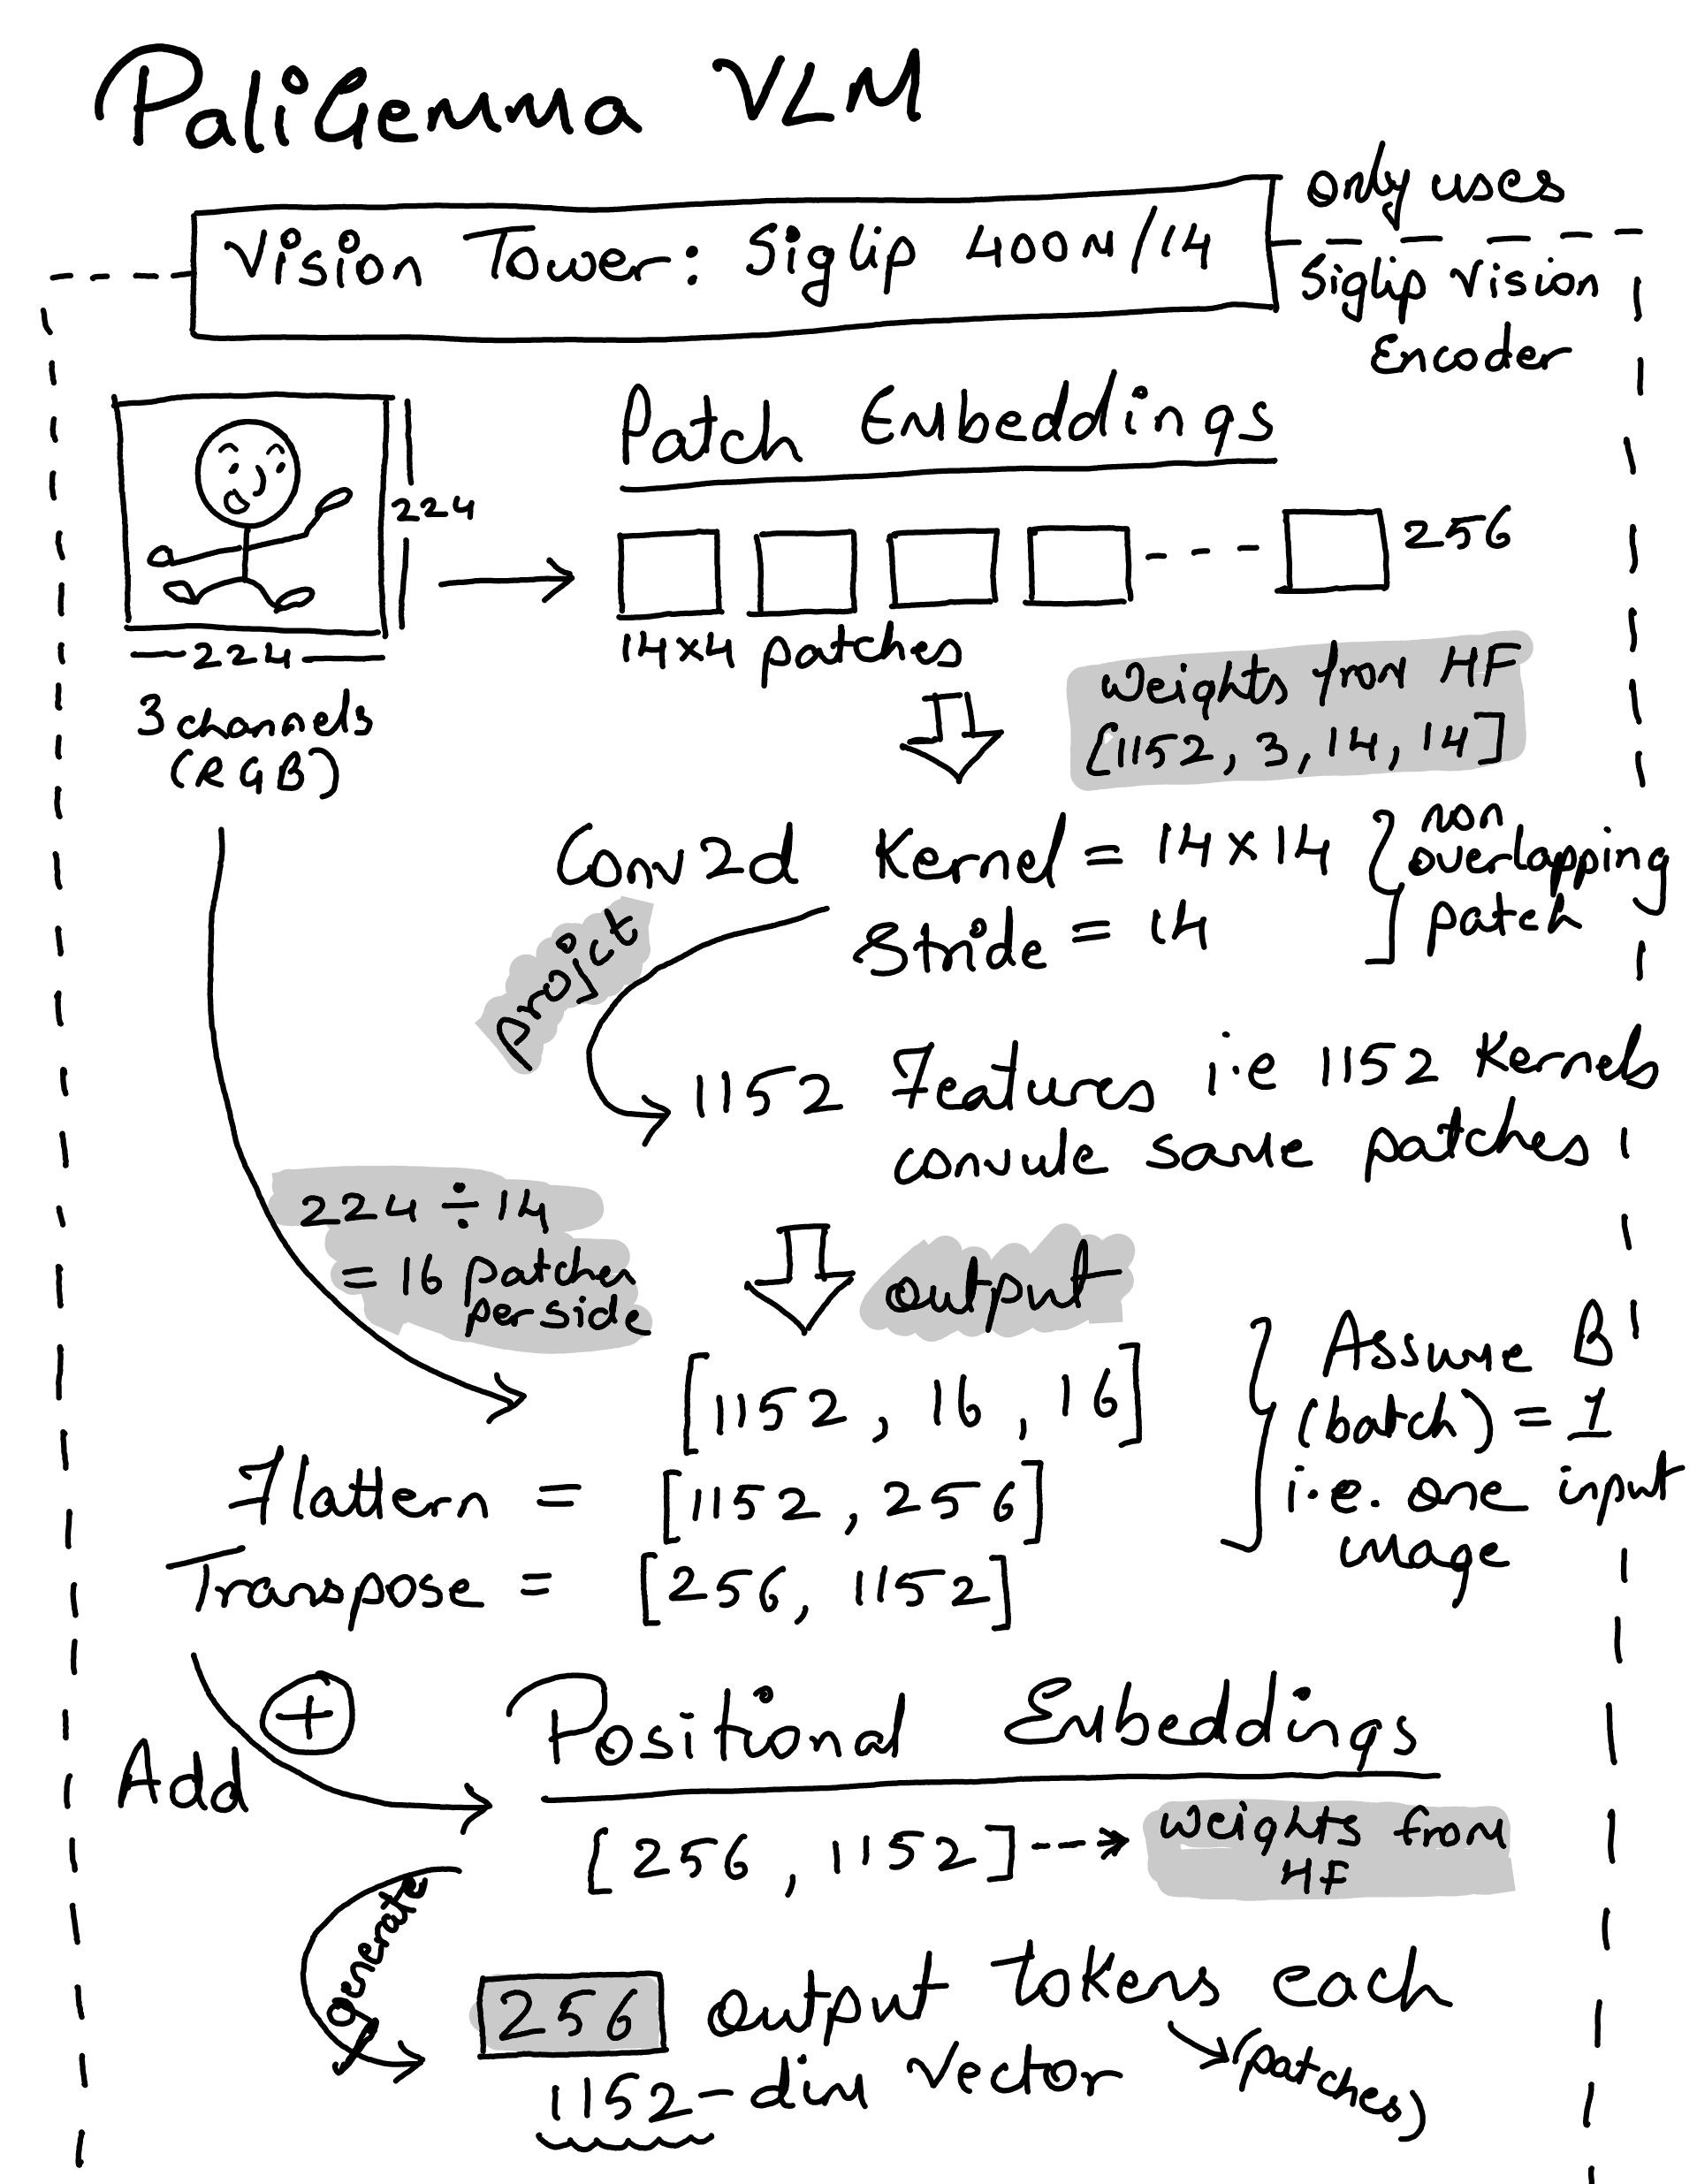 PaliGemma VLM
only uses
Vision Tower: Siglip 400M/14
Siglip Vision
Encoder
Patch Embeddings
224
256
224
14x4 patches
3 channels
(RGB)
Weights from HF
[1152, 3, 14, 14]
Conv2d Kernel = 14x14
Stride = 14
non
overlapping
patch
project
1152 Features i.e 1152 Kernels
convule same patches
224 ÷ 14
= 16 patches
per side
output
[1152, 16, 16]
Flattern = [1152, 256]
Transpose = [256, 1152]
Assume B
(batch) = 1
i.e. one input
image
+
Add
Positional Embeddings
[256, 1152]
weights from
HF
generate
256 output tokens each
(patches)
1152-dim vector